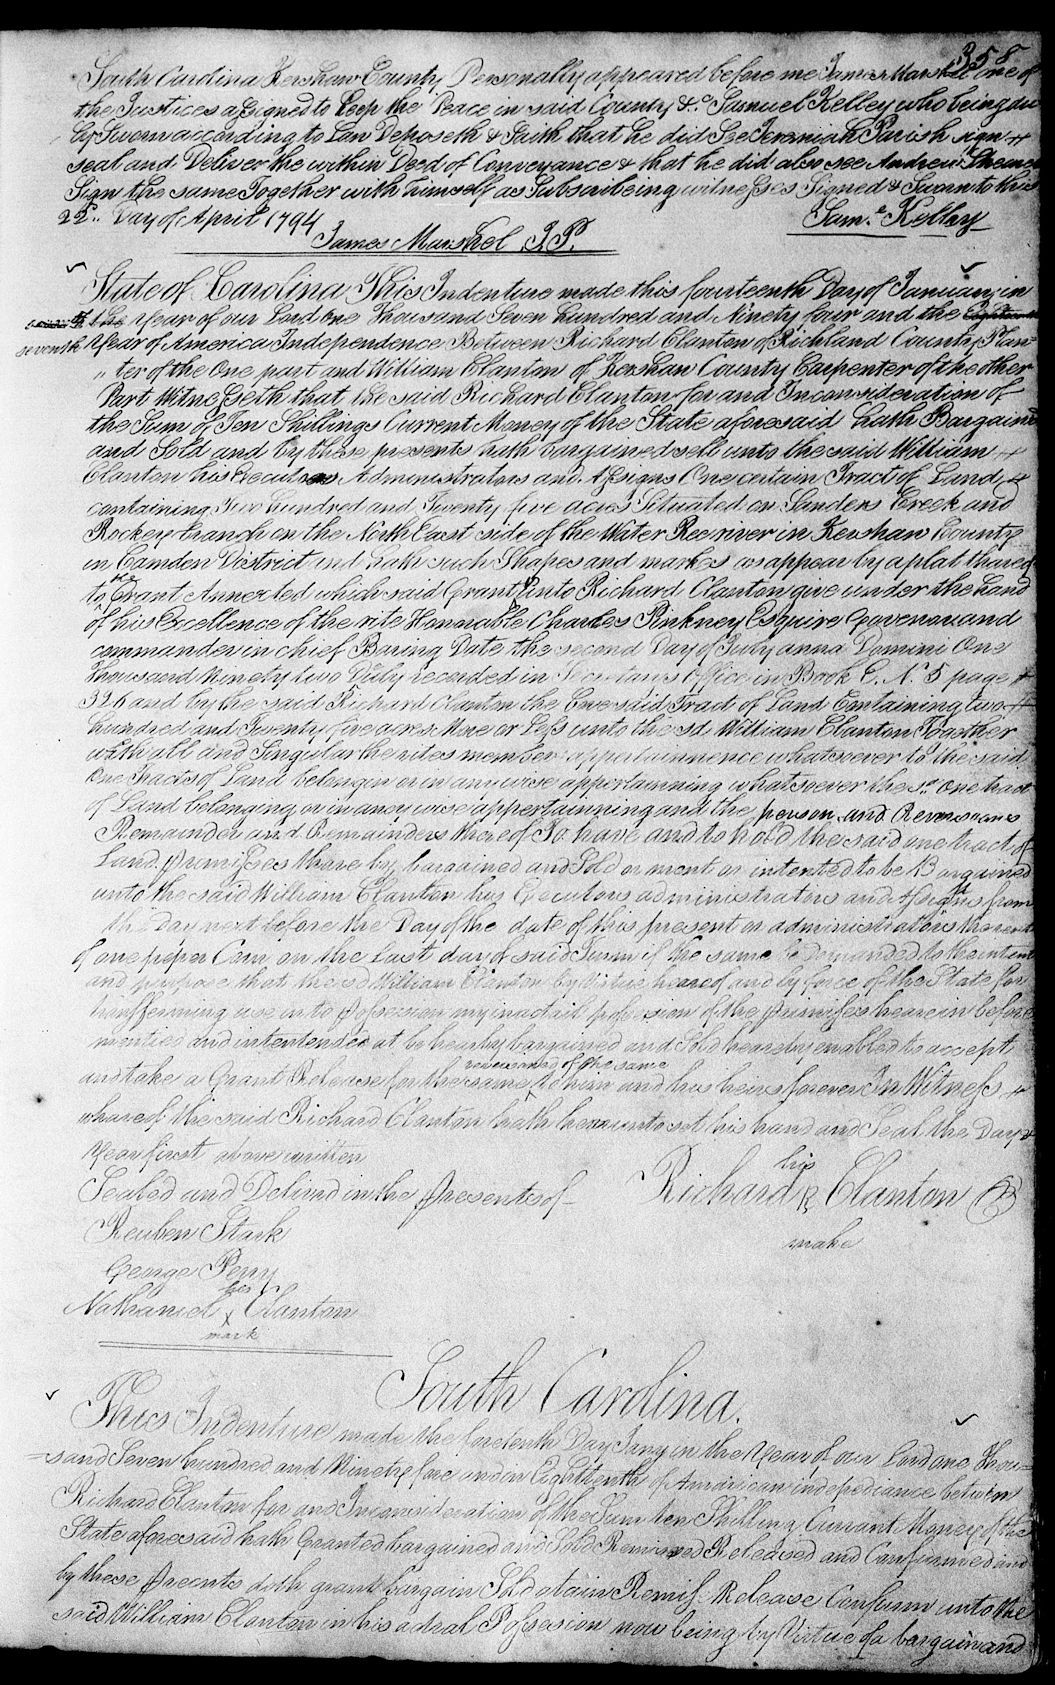 358
South Carolina Kershaw County Personally appeared before me James Marshel one of
the Justices assigned to keep the Peace in said County &c Samuel Kelley who being du
ly Sworn according to Law Deposeth & Saith that he did See Jeremiah Parish sign +
seal and Deliver the within Deed of Conveyance & that he did also see Andrew
Sign the same Together with himself as Subscribeing witnesses Signed & Sworn to this
22d.. Day of April 1794 Saml Kelley
James Marshel J.P.
State of Carolina This Indenture made this fourteenth Day of January in
the Year of our Lord One Thousand Seven hundred and Ninety four and the
seventh Year of America Independence Between Richard Clanton of Richland County Plan=
" ter of the One part and William Clanton of Kershaw County Carpenter of the other
Part Witnesseth that the said Richard Clanton for and Inconsideration of
the Sum of Ten Shillings Current Money of the State aforesaid hath Bargaind
and Sold and by these presents hath bargained sell unto the said William +
Clanton his Executors Administrators and Assigns One certain Tract of Land, +
containing Two hundred and Twenty five acres Situated on Sanders Creek and
Rockey branch on the North East side of the Water Ree river in Kershaw County
in Camden District and hath such Shapes and markes as appear by a plat thareof
to the Grant Annected which said Grant unto Richard Clanton give under the hand
of his Excellence of the rite Honnable Charles Pinkney Esquire Govenor and
commander in chief Baring Date the second Day of July anna Domini One
Thousand Ninety two Duly recorded in Secretarus Office in Book E. N. 5 page +
326 and by the said Richard Clanton the Eore said Tract of Land Containing two +
hundred and Twenty five acres More or Less unto the sd. William Clanton Togather
with all and Singular the rites member appertainnence whatsoever to the said
One Tracts of Land belongin or in any wise appertainning whatsoever the sd. one tract
of Land belonging or in any wise appertainning and the person and Reversions
Remainder and Remainders thareof To have and to hold the said one tract of
Land premisses thare by bargained and Sold or ment or intented to be Bargained
unto the said William Clanton his Executors administrators and Assigns from
the Day next before the Day of the date of this present or administrators the rent
of one peper Corn on the Last day of said Turm if the same be Demanded to the intent
and purpose that the sd William Clanton by Virtue heareof and by force of the State for
transferrining use in to possesion may in actail possesion of the premisses hearein before
mention and intentended at be hearby bargained and Sold heareby enabled to accept
and take a Grant Release for the same reversiond of the same to him and his heirs forever In Witness +
whareof the said Richard Clanton hath hereunto set his hand and Seal the Day &
Year first above written
Sealed and Deliverd in the Presents of Richard his Clanton
make
Reuben Stark
George Perry
Nathaniel his x Clanton
mark
South Carolina.
This Indenture made the foretenth Day Jany in the Year of our Lord one Thou=
=sand Seven hundred and Ninety fore and in Eighttenth of American indepediance between
Richard Clanton for and Inconsideration of the Sum ten Shilling Currant Money of the
State aforesaid hath Granted bargained and Sold Remissed Released and Confirmed and
by these Presents doth grant bargain Sold Remiss Release Confirm unto the
said William Clanton in his actual Possesion now being by Virtue of a bargain and